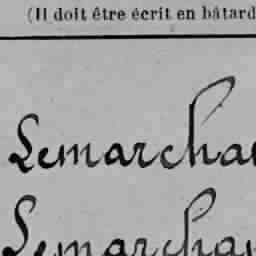 (Il doit être écrit en bâtard
Lemarchan
Lemarchan